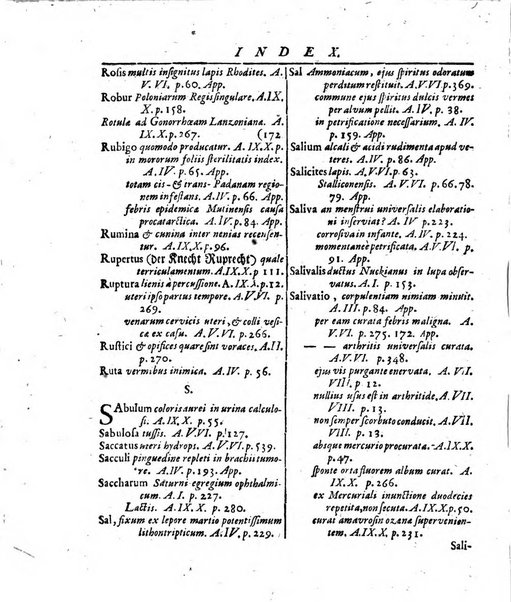 INDEX.
Rosis multis insignitus lapis Rhodites. A.
V. VI. p. 60. App.
Robur Poloniarum Regis singulare. A. IX.
X. p. 158.
Rotula ad Gonorrhœam Lanzoniana. A.
IX. X. p. 267. (172
Rubigo quomodo producatur. A. IX. X. p.
in mororum foliis sterilitatis index.
A. IV. p. 65. App.
totam cis- & trans- Padanam regio-
nem infestans. A. IV. p. 66. App.
febris epidemica Mutinensis causa
procatarctica. A. IV. p. 84. App.
Rumina & cunina inter nenias recensen-
tur. A. IX. X. p. 96.
Rupertus (der Knecht Ruprecht) quale
terriculamentum. A. IX. X. p 111.
Ruptura lienis à percussione. A. IX. X. p. 12.
uteri ipso partus tempore. A. V. VI. p.
269.
venarum cervicis uteri, & colli vesi-
cæ ex casu. A. V. VI. p. 266.
Rustici & opifices quare sint voraces. A. II.
p. 270.
Ruta vermibus inimica. A. IV. p. 56.
S.
SAbulum coloris aurei in urina calculo-
si. A. IX. X. p. 55.
Sabulosa tussis. A. V. VI. p. 127.
Saccatus uteri hydrops. A. V. VI. p. 539.
Sacculi pinguedine repleti in brachii tumo-
re. A. IV. p. 193. App.
Saccharum Saturni egregium ophthalmi-
cum. A. I. p. 227.
Lactis. A. IX. X. p. 280.
Sal, fixum ex lepore martio potentissimum
lithontripticum. A. IV. p. 229.
Sal Ammoniacum, ejus spiritus odoratum
perditum restituit. A. V. VI. p. 369.
commune ejus spiritus dulcis vermes
per alvum pellit. A. IV. p. 38.
in petrificatione necessarium. A. IV.
p. 159. App.
Salium alcali & acidi rudimenta apud ve-
teres. A. IV. p. 86. App.
Salicites lapis. A. V. VI. p. 63.
Stalliconensis. A. V. VI. p. 66. 78.
79. App.
Saliva an menstrui universalis elaboratio-
ni inserviat? A. IV p. 223.
corrosiva in infante. A. IV. p. 224.
momento petrificata. A. V. VI. p.
91. App.
Salivalis ductus Nuckianus in lupo obser-
vatus. A. I. p. 153.
Salivatio, corpulentiam nimiam minuit.
A. III. p. 84. App.
per eam curata febris maligna. A.
V. VI. p. 275. 172. App.
— — arthritis universalis curata.
A. V. VI. p. 348.
ejus vis purgante enervata. A. VII.
VIII. p. 12.
nullius usus est in arthritide. A. VII.
VIII. p. 7.
non semper scorbuto conducit. A. VII.
VIII. p. 90.
absque mercurio procurata. A. IX. X.
p. 47.
sponte orta fluorem album curat. A.
IX. X. p. 266.
ex Mercurials inunctione duodecies
repetita, non secuta. A. IX. X. p. 50.
curat amavrosin ozæna supervenien-
tem. A. IX. X. p. 231.
Sali-